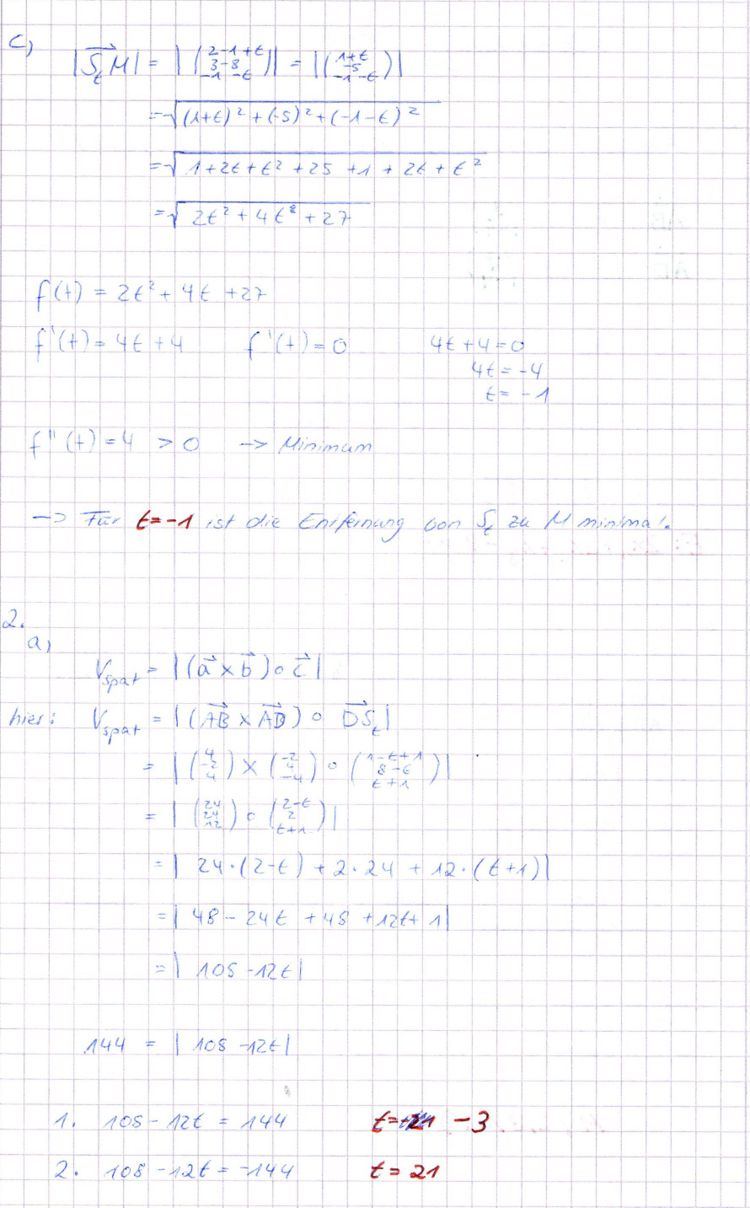 c) |S⃗ₜM| = |(2-1+t / 3-8 / -1-t)| = |(1+t / -5 / -1-t)|
= √((1+t)² + (-5)² + (-1-t)²)
= √(1+2t+t² + 25 + 1 + 2t + t²)
= √(2t² + 4t² + 27)
f(t) = 2t² + 4t + 27
f'(t) = 4t + 4 f'(t) = 0 4t + 4 = 0
4t = -4
t = -1
f''(t) = 4 > 0 -> Minimum
-> Für t = -1 ist die Entfernung von Sₜ zu M minimal.
2.
a)
V_spat = |(a⃗ × b⃗) ∘ c⃗|
hier: V_spat = |(AB⃗ × AD⃗) ∘ DS⃗ₜ|
= |(4 / -2 / 4) × (-2 / 4 / -4) ∘ (1-t+1 / 8-6 / t+1)|
= |(24 / 24 / 12) ∘ (2-t / 2 / t+1)|
= | 24·(2-t) + 2·24 + 12·(t+1)|
= | 48 - 24t + 48 + 12t + 1|
= | 108 - 12t|
144 = | 108 - 12t|
1. 108 - 12t = 144 t = -3
2. 108 - 12t = -144 t = 21